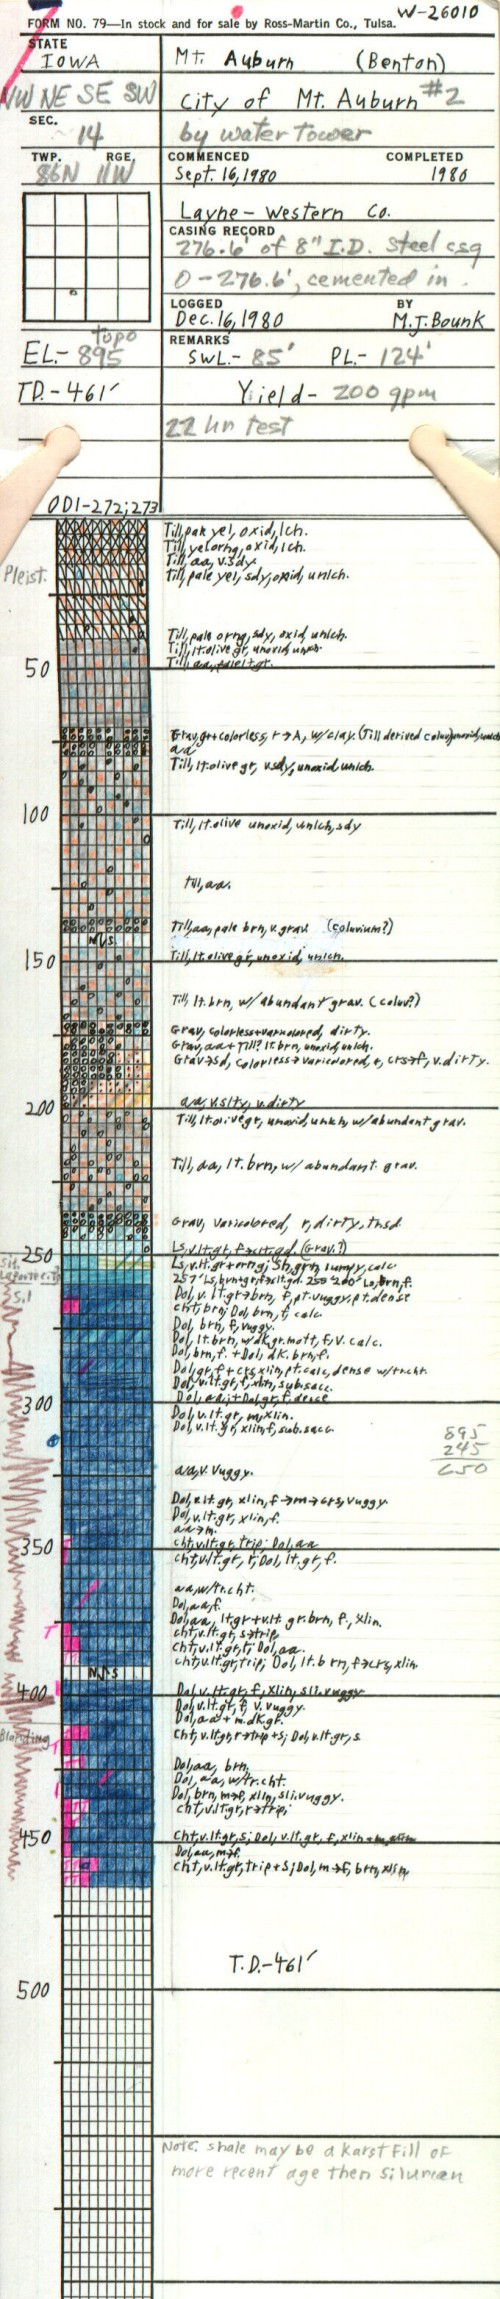 W-26010
FORM NO. 79—In stock and for sale by Ross-Martin Co., Tulsa.
STATE
IOWA
Mt. Auburn (Benton)
NW NE SE SW
City of Mt. Auburn #2
SEC.
14
by water tower
TWP. RGE.
86N 11W
COMMENCED COMPLETED
Sept. 16, 1980 1980
Layne-Western Co.
CASING RECORD
276.6' of 8" I.D. Steel csg
0-276.6', cemented in.
LOGGED BY
Dec. 16, 1980 M.J. Bounk
REMARKS
topo
EL.- 895
SWL.- 85' PL.- 124'
TD.- 461'
Yield- 200 gpm
22 hr test
ODI-272;273
Till, pale yel, oxid, lch.
Till, yelorng, oxid, lch.
Till, aa, v.sdy.
Pleist.
Till, pale yel, sdy, oxid, unlch.
Till, pale orng, sdy, oxid, unlch.
Till, lt.olive gr, unoxid, unlch.
50
Grav, gr+colorless, r→A, w/clay. (Till derived
aa
Till, lt.olive gr, v.sdy, unoxid, unlch.
100
Till, lt.olive unoxid, unlch, sdy
Till, aa.
Till, aa, pale brn, v.grav. (coluvium?)
N.S.
150
Till, lt.olive gr, unoxid, unlch.
Till, lt.brn, w/abundant grav. (coluv?)
Grav, colorless+varicolored, dirty.
Grav, aa+Till? lt.brn, unoxid, unlch.
Grav→sd, colorless→varicolored, crs→f, v.dirty.
200
aa, v.slty, v.dirty
Till, lt.olive gr, unoxid, unlch, w/abundant grav.
Till, aa, lt.brn, w/abundant grav.
Grav, varicolored, r, dirty, tnsd
250
(Grav.?)
Sil
Dol, v.lt.gr→brn, f, pt.vuggy, pt.dense
cht, brn; Dol, brn, f, calc.
Dol, brn, f, vuggy.
Dol, lt.brn, w/dk.gr.mott, f, V. calc.
Dol, brn, f. + Dol, dk. brn, f.
Dol, gr, f+crs, xlin, pt.calc, dense w/tr.cht.
Dol, v.lt.gr, f, xlin, sub.sacc.
300
Dol, aa, + Dol, gr, f, dense
Dol, v.lt.gr, m, xlin.
Dol, v.lt.gr, xlin, f, sub.sacc.
895
245
650
aa, v. vuggy.
Dol, v.lt.gr, xlin, f→m→crs, vuggy.
Dol, v.lt.gr, xlin, f.
aa→m.
350
cht, v.lt.gr, trip; Dol, aa
cht, v.lt.gr, r; Dol, lt.gr, f.
aa, w/tr.cht.
Dol, aa, f.
Dol, aa, lt.gr+v.lt gr.brn, f, Xlin.
cht, v.lt.gr, s→trip
cht, v.lt.gr, r; Dol, aa.
cht, v.lt.gr, trip; Dol, lt.brn, f→crs, xlin.
N.S
400
Dol, v.lt.gr, f, xlin, sli.vuggy
Dol, v.lt.gr, f, v.vuggy.
Dol, aa + m.dk.gr.
Blanding
cht, v.lt.gr, r→trip+s; Dol, v.lt.gr, s
Dol, aa, brn.
Dol, aa, w/tr.cht.
Dol, brn, m→f, xlin, sli.vuggy.
cht, v.lt.gr, r→trip;
450
cht, v.lt.gr, s; Dol, v.lt.gr, f, xlin
Dol, aa, m→f.
cht, v.lt.gr, trip+S; Dol, m→f, brn, xlin
T.D.-461'
500
Note: shale may be a karst fill of
more recent age then Silurian